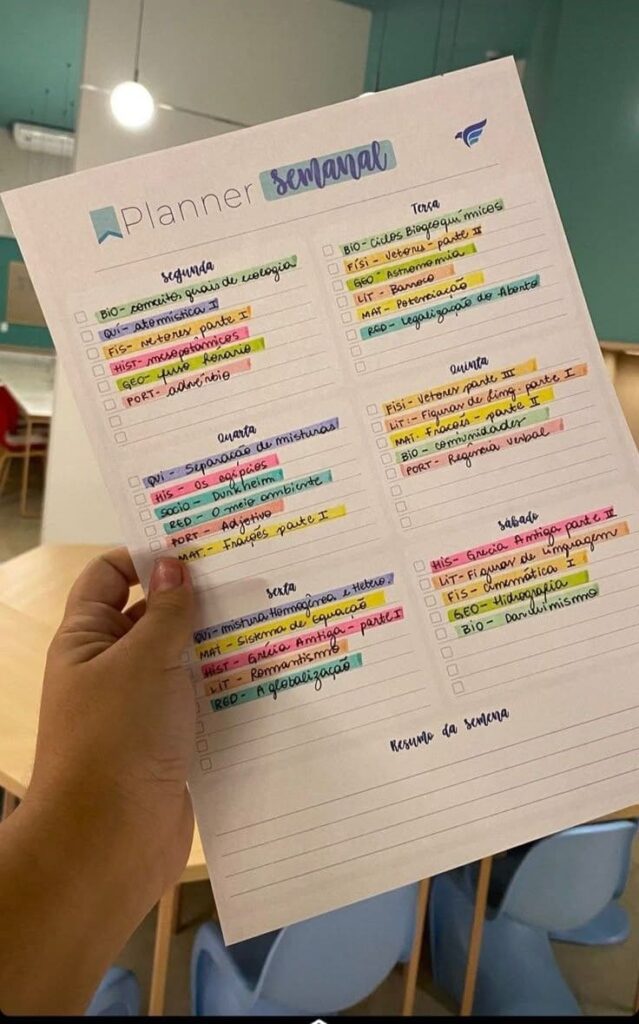 Planner semanal
Segunda
BIO - conceitos gerais de ecologia
QUI - atomística I
FIS - vetores parte I
HIST - mesopotâmicos
GEO - fuso horário
PORT - advérbio
Terça
BIO - Ciclos Biogeoquímicos
FÍSI - Vetores - parte II
GEO - Astronomia
LIT - Barroco
MAT - Potenciação
RED - Legalização do Aborto
Quarta
QUI - Separação de misturas
HIS - Os egípcios
SOCIO - Durkheim
RED - O meio ambiente
PORT - Adjetivo
MAT - Frações parte I
Quinta
FISI - Vetores parte III
LIT: - Figuras de ling. parte I
MAT. Frações - parte II
BIO - comunidades
PORT - Regência verbal
Sexta
QUI - mistura Homogênea e Hetero.
MAT - Sistema de Equação
HIST - Grécia Antiga - parte I
LIT - Romantismo
RED - A globalização
Sábado
HIS - Grécia Antiga parte II
LIT - Figuras de linguagem
FIS - cinemática I
GEO - Hidrografia
BIO - Darwinismo
Resumo da semana